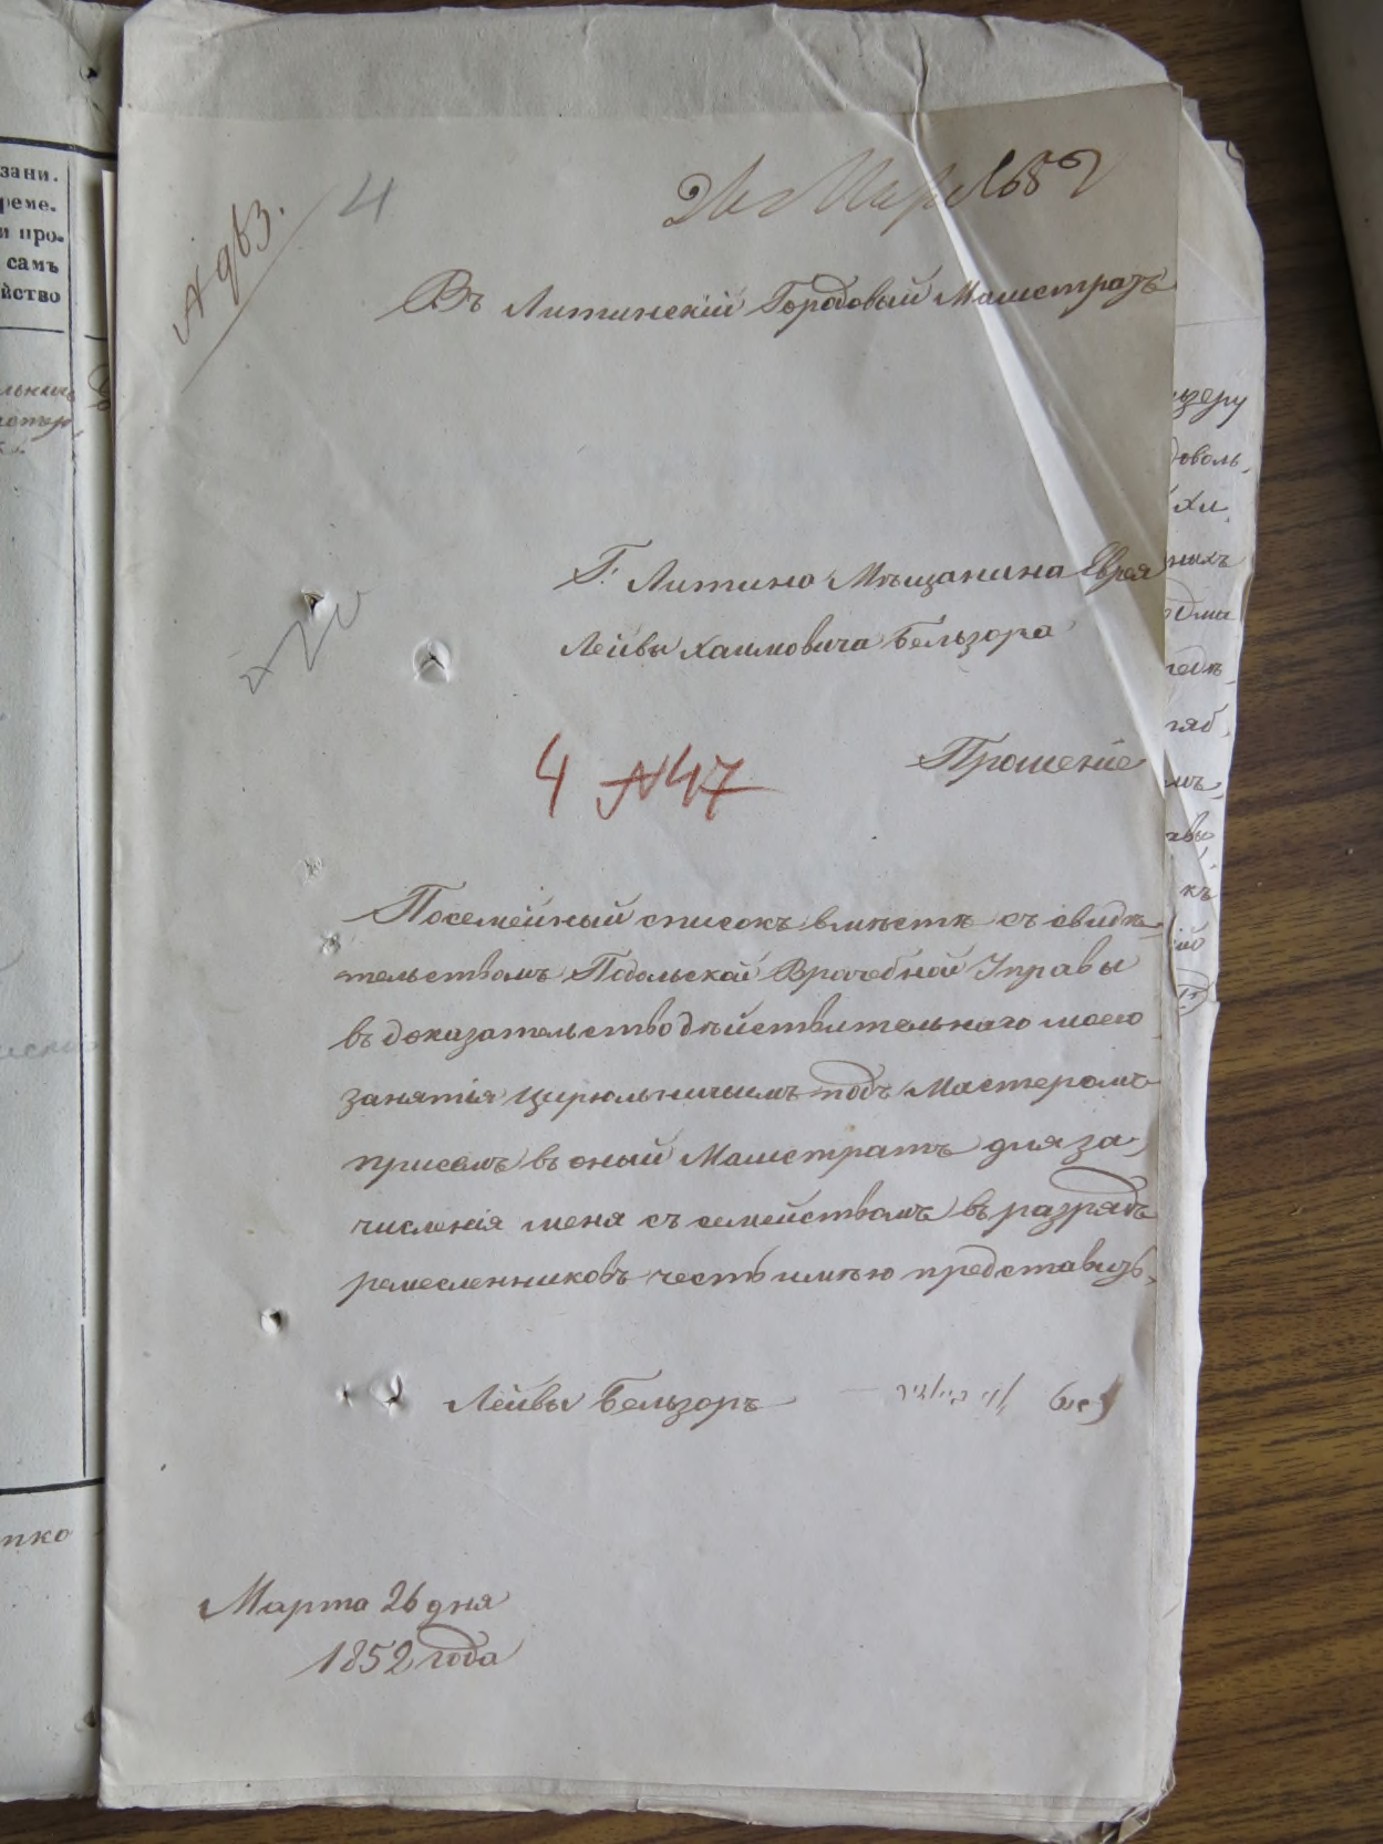 зани.
реме.
и про.
самъ
йство
4
26 Мар 1852
Въ Литинскій Городовый Магистратъ
Г: Литина Мѣщанина Еврея
Лейбы Хаимовича Бельзора
4 №47
Прошеніе
Посемейный списокъ вмѣстѣ съ свидѣ-
тельствомъ Подольской Врачебной Управы
въ доказательство дѣйствительнаго моего
занятія цирюльничьимъ подъ Мастеромъ
при семъ въ оный Магистратъ для за-
численія меня съ семействомъ въ разрядъ
ремесленниковъ честь имѣю представить.
Лейбы Бельзоръ
Марта 26 дня
1852 года